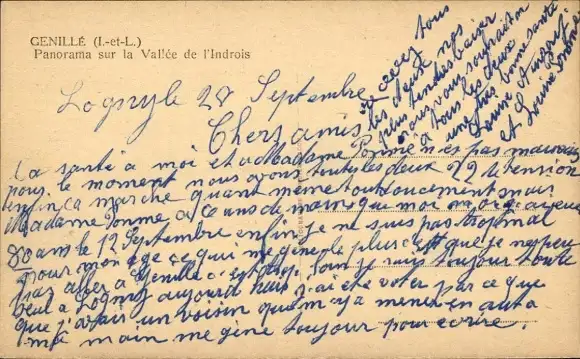 GENILLÉ (I.-et-L.)
Panorama sur la Vallée de l'Indrois
le 28 Septembre
Chers amis
La santé a moi et a Madame Pomme n'es pas mauvais
pour le moment nous avons toutes les deux 22 de tension
enfin ça marche quant même tout doucement mais
Madame Pomme a ans de moins que moi moi j'ai eu
80 ans le 12 Septembre enfin je ne suis pas trop mal
pour mon age ce qui me gêne le plus c'est que je ne peu
pas aller a Genillé c'est loin je suis toujour toute
seul a Logny aujourd'hui j'ai été voter par ce que
que j'avais un voisin qui m'y a mener en auto
ma main me gêne toujour pour écrire.
recevez tous
les deux nos
plus tendres baiser
nous vous souhaiton
a tous les deux
une très bonne santé
Louise
et Louise Pomme